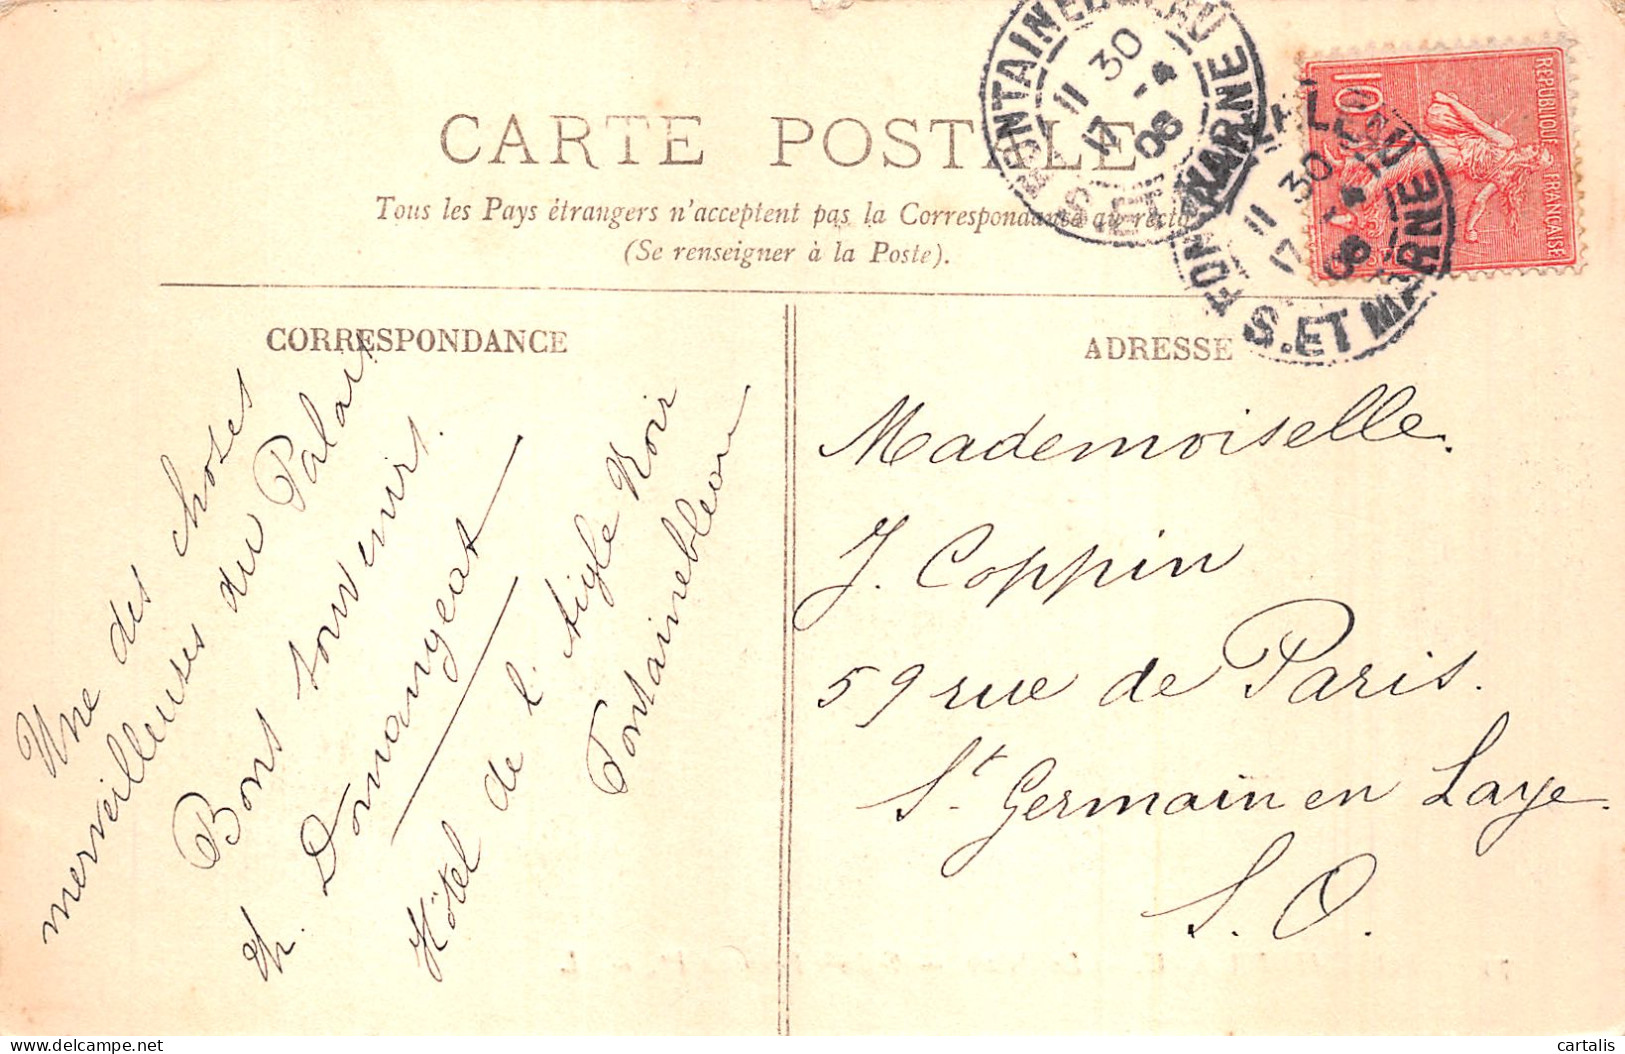 CARTE POSTALE
Tous les Pays étrangers n'acceptent pas la Correspondance au recto
(Se renseigner à la Poste).
FONTAINEBLEAU
11 30
17 -4
06
S. ET MARNE
FONTAINEBLEAU
11 30
17 -4
06
S. ET MARNE
10
REPUBLIQUE FRANÇAISE
CORRESPONDANCE
Une des choses
merveilleuses du Palais
Bons souvenirs.
Domangeat
Hôtel de l'Aigle Noir
Fontainebleau
ADRESSE
Mademoiselle.
J. Coppin
59 rue de Paris.
St Germain en Laye.
S. O.
cartalis